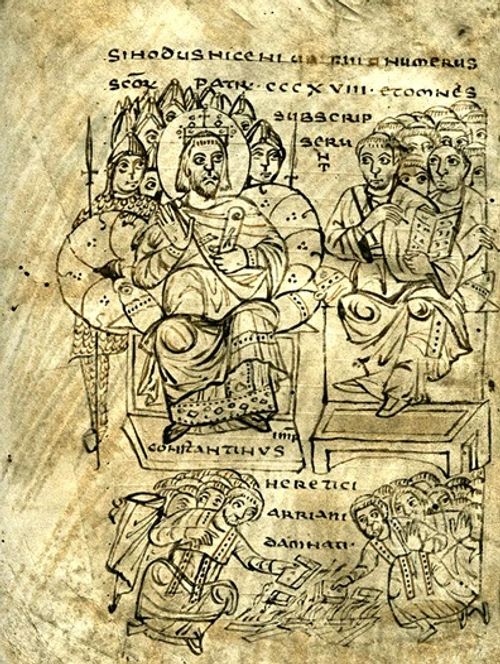 SINODUS NICENI NUMERUS
SCOR PATR · CCCXVIII · ET OMNES
SUBSCRIP
SERU
NT
IMP
CONSTANTINUS
HERETICI
ARRIANI
DAMNATI ·